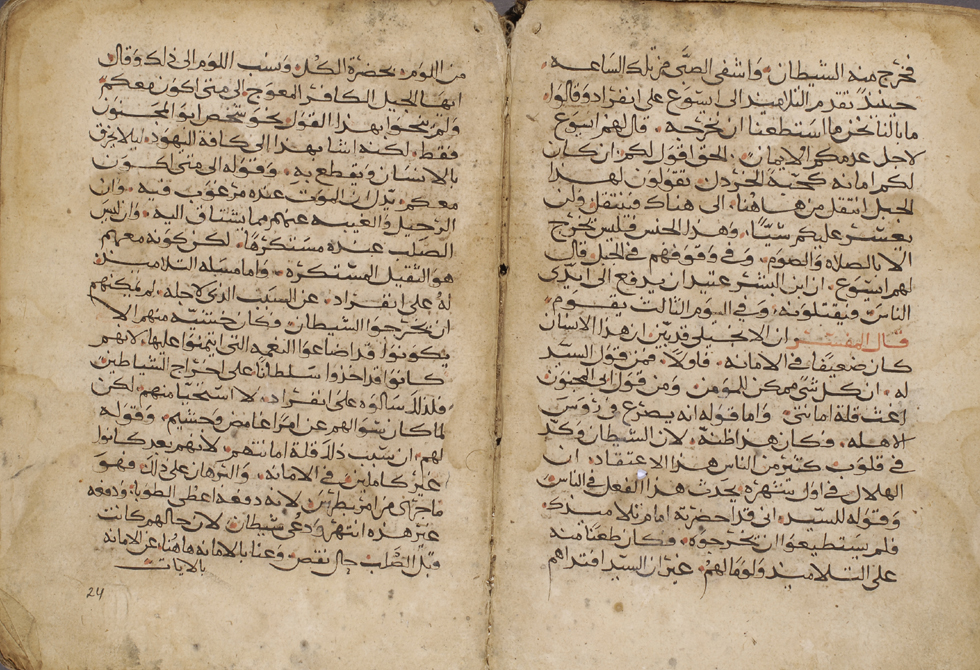 فخرج منه الشيطان. واشفى الصبي من تلك الساعه.
حينيذ تقدم التلاميذ الى ايسوع على انفراد وقالوا.
ما بالنا نحن ما استطعنا ان نخرجه. قال لهم ايسوع
لاجل عدمكم الايمان. الحق اقول لكم ان كان
لكم امانه كحبة الخردل. تقولون لهذا
الجبل انتقل من هاهنا. الى هناك فينتقل ولن
يعسر عليكم شيًا. وهذا الجنس فليس يخرج
الا بالصلاه والصوم. وفي وقوفهم في الجليل قال
لهم ايسوع. ان ابن البشر عتيد ان يدفع الى ايدي
الناس فيقتلونه. وفي اليوم الثالث يقوم
قال المفسر ان الانجيلي قد بين ان هذا الانسان
كان ضعيفًا في الامانه. فاولًا. فمن قول السيد
له. ان كل شي ممكن للمومن. ومن قول ابي المجنون
اعن قلة امانتي. واما قوله انه يصرع في روس
الاهله. فكان هذا ظنه. لان الشيطان وكد
في قلوب كثير من الناس هذا الاعتقاد. ان
الهلال في اول شهره يحدث هذا الفعل في الناس
وقوله للسيد. اني قد احضرته امام تلاميذك.
فلم يستطيعوا ان يخرجوه. فكان طعنًا منه
على التلاميذ ولومًا لهم. غير ان السيد افتداهم
من اللوم. بحضرة الكل. ونسب اللوم الى ذلك وقال
ايها الجيل الكافر المعوج الى متى اكون معكم
ولم ينحوا بهذا القول نحو شخص ابو المجنون
فقط. لكنه انشا بهذا الى كافة اليهود. ليلا يزق
بالانسان ويقطع به. وقوله الى متى اكون
معكم. يدل ان الموت عنده مرغوب فيه. وان
الرحيل والغيبه عنهم مما يشتاق اليه. وان ليس
الصلب عنده مستكرهًا. لكن كونه معهم
هو الثقيل المستكره. واما مسله التلاميذ
له على انفراد. عن السبب الذي لاجله. لم يمكنهم
ان يخرجوا الشيطان. فكان خشيه منهم الا
يكونوا قد اضاعوا النعمه التي ايتمنوا عليها. لانهم
كانوا قد اخذوا سلطانًا على اخراج الشياطين
فلذلك سالوه على انفراد. لا استحيا منهم. لكن
لما كان سوالهم عن امرًا غامض وحشيم. وقوله
لهم. ان سبب ذلك قلة امانتهم. لانهم بعد كانوا
غير كاملين في الامانه. والبرهان على ذلك فهو
ما جرى من امر بطرس. لانه دفعه اعطى الطوبا. ودفعه
غير هذه انتهره ودعي شيطان. لان حالهم كانت
قبل الصلب حال نقص. وعنا بالامانه هاهنا عن الامانه
بالايات
24